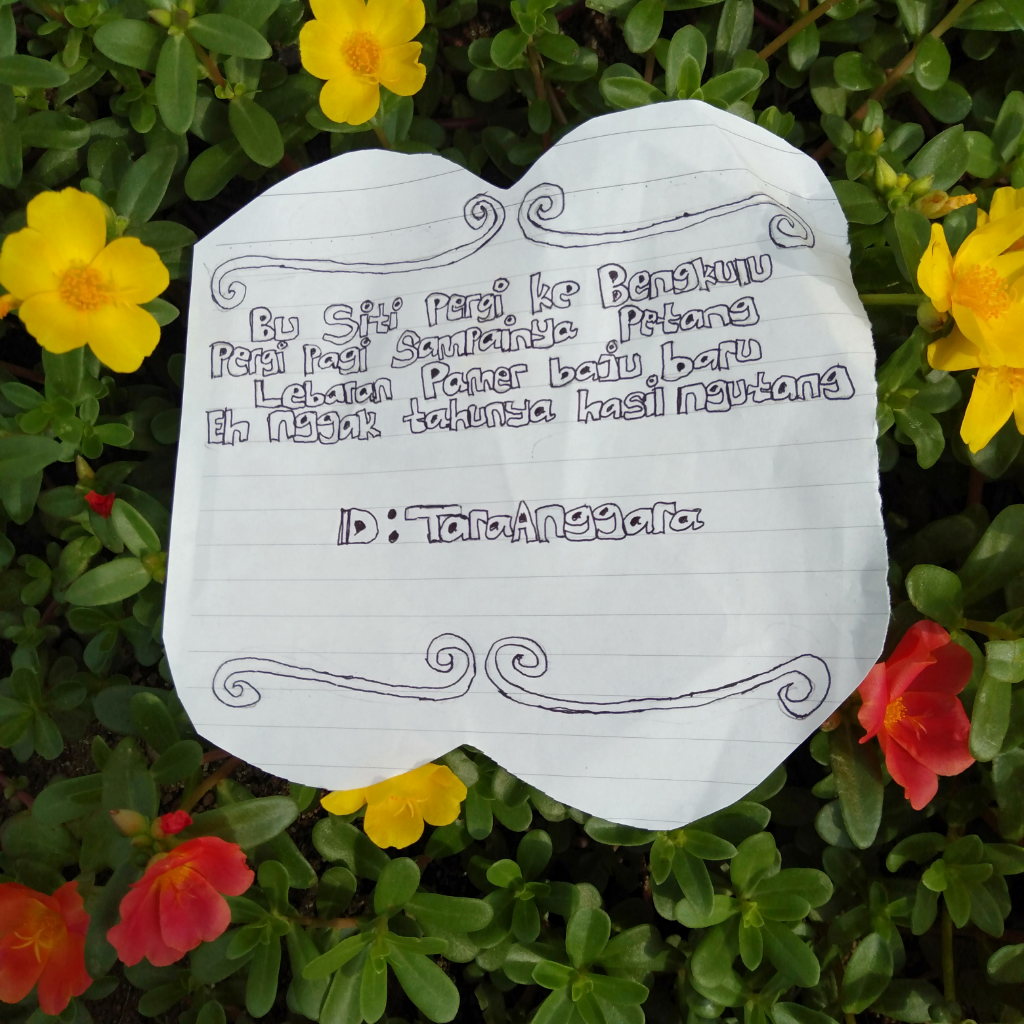 Bu Siti Pergi ke Bengkulu
Pergi Pagi Sampainya Petang
Lebaran Pamer baju baru
Eh nggak tahunya hasil ngutang
ID : TaraAnggara